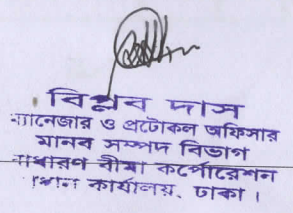 বিপ্লব দাস
ম্যানেজার ও প্রটোকল অফিসার
মানব সম্পদ বিভাগ
সাধারণ বীমা কর্পোরেশন
প্রধান কার্যালয়, ঢাকা।